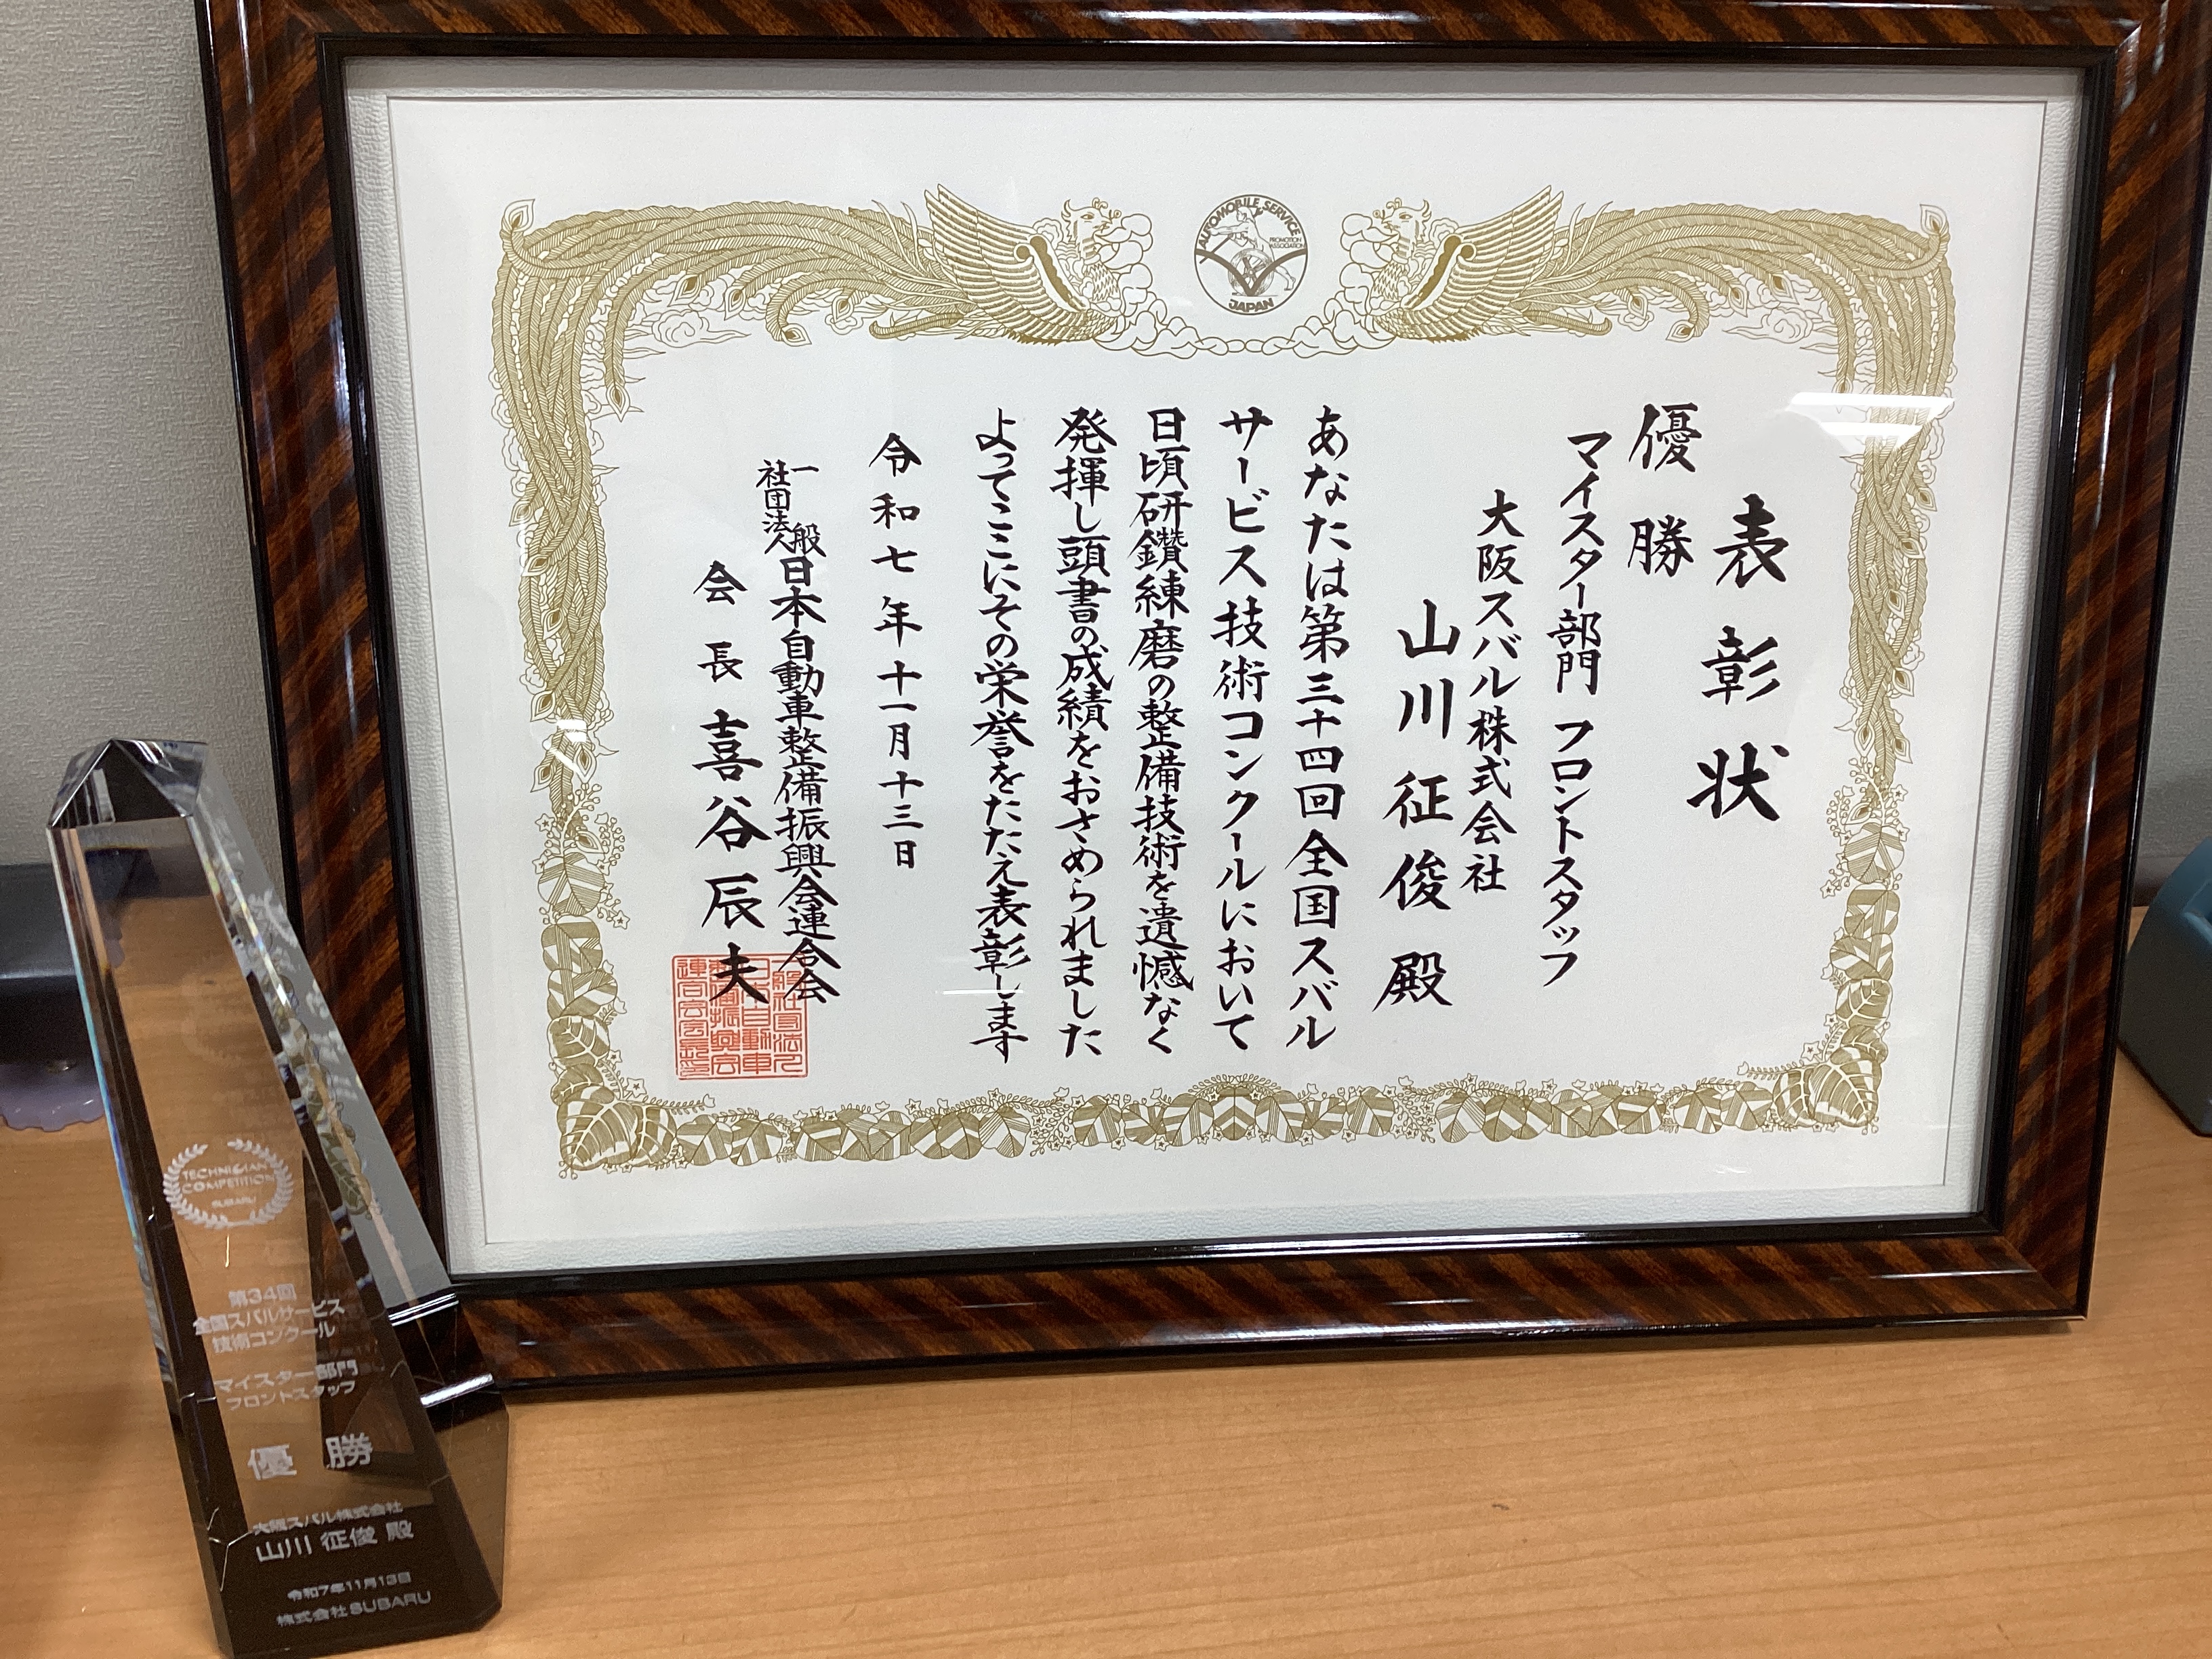 表彰状
優勝
マイスター部門 フロントスタッフ
大阪スバル株式会社
山川征俊殿
あなたは第三十四回全国スバル
サービス技術コンクールにおいて
日頃研鑽練磨の整備技術を遺憾なく
発揮し頭書の成績をおさめられました
よってここにその栄誉をたたえ表彰します
令和七年十一月十三日
一般社団法人日本自動車整備振興会連合会
会長 喜谷辰夫
AUTOMOBILE SERVICE
PROMOTION
ASSOCIATION
JAPAN
TECHNICIAN
COMPETITION
SUBARU
第34回
全国スバルサービス
技術コンクール
マイスター部門
フロントスタッフ
優勝
大阪スバル株式会社
山川 征俊 殿
令和7年11月13日
株式会社SUBARU